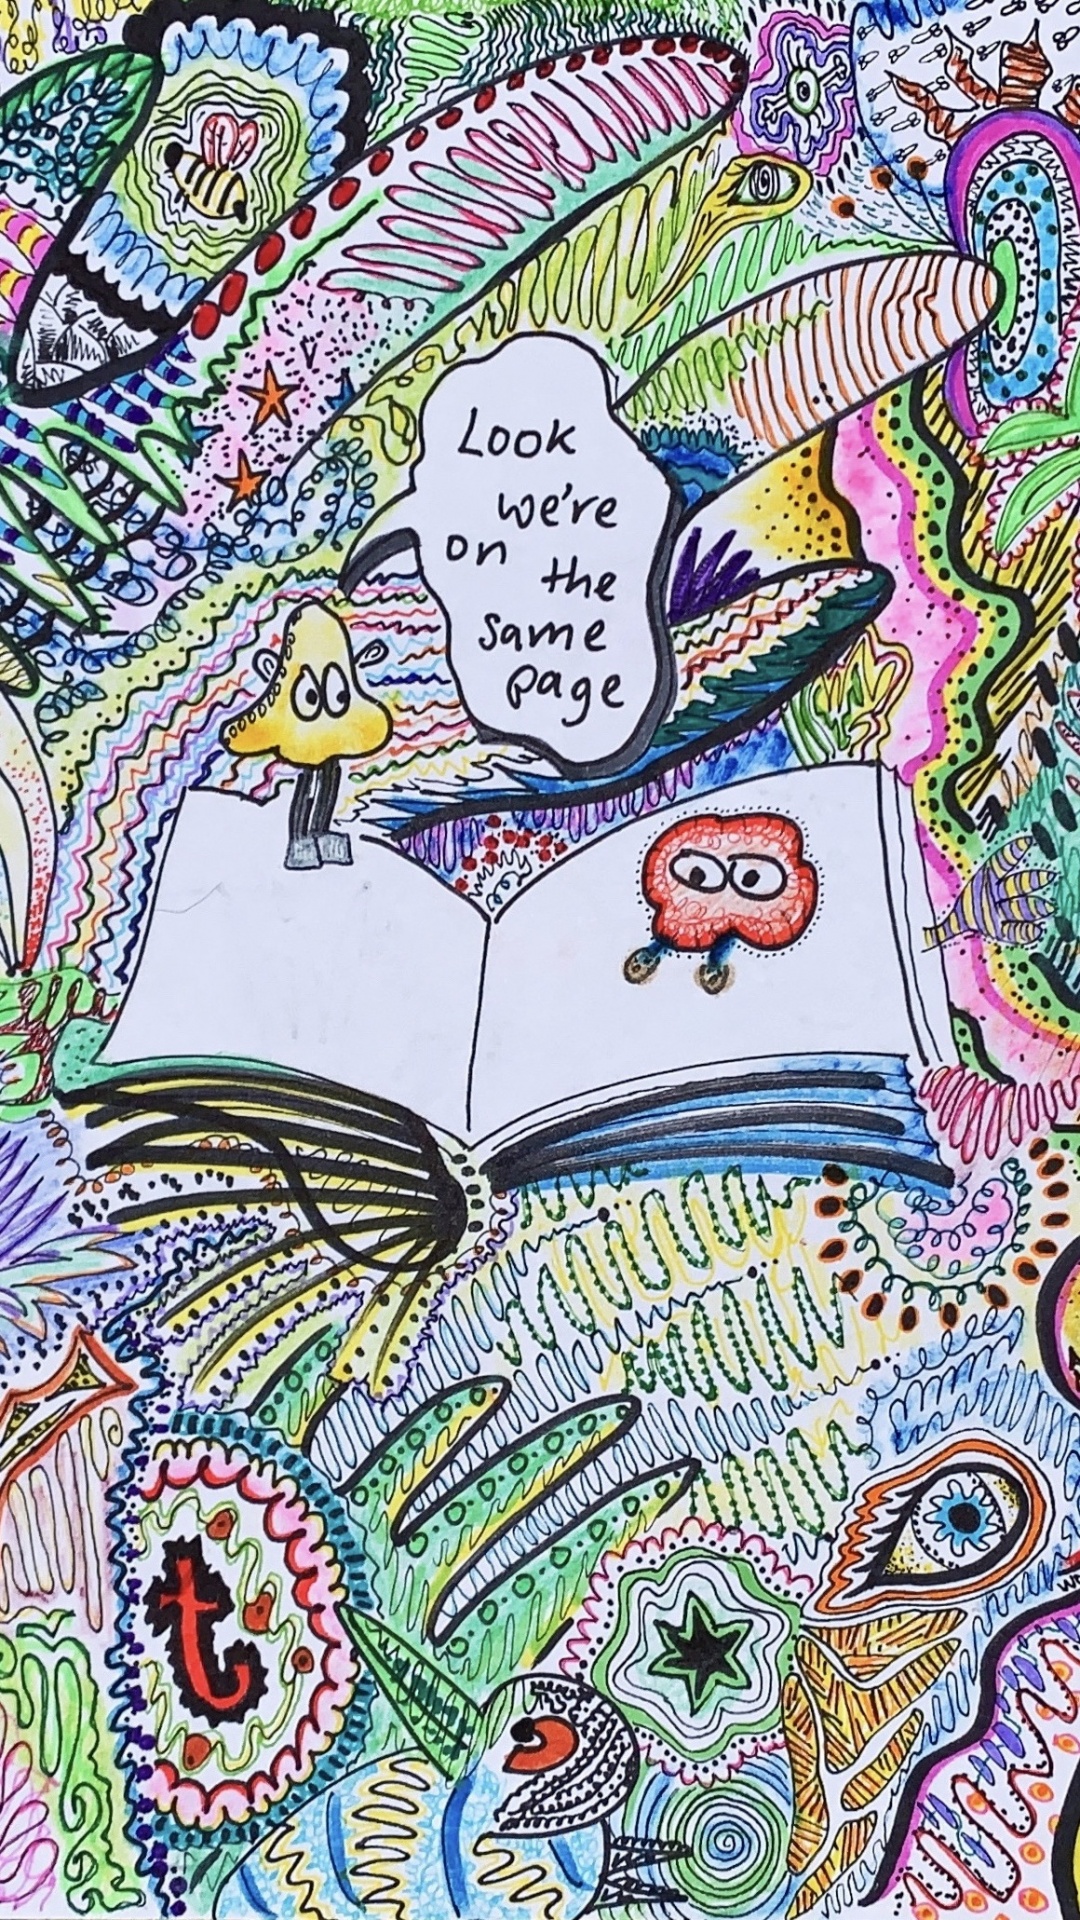 Look
we're
on
the
same
page
t